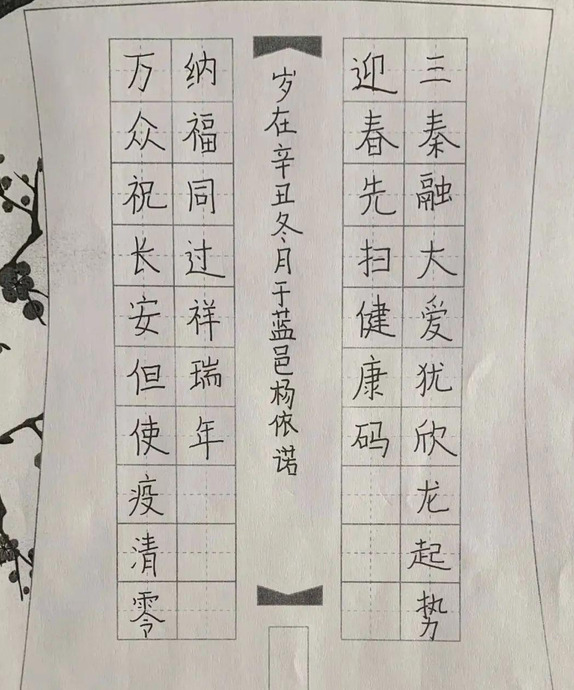 三秦融大爱犹欣龙起势
迎春先扫健康码
万众祝长安但使疫清零
纳福同过祥瑞年
岁在辛丑冬月于蓝邑杨依诺